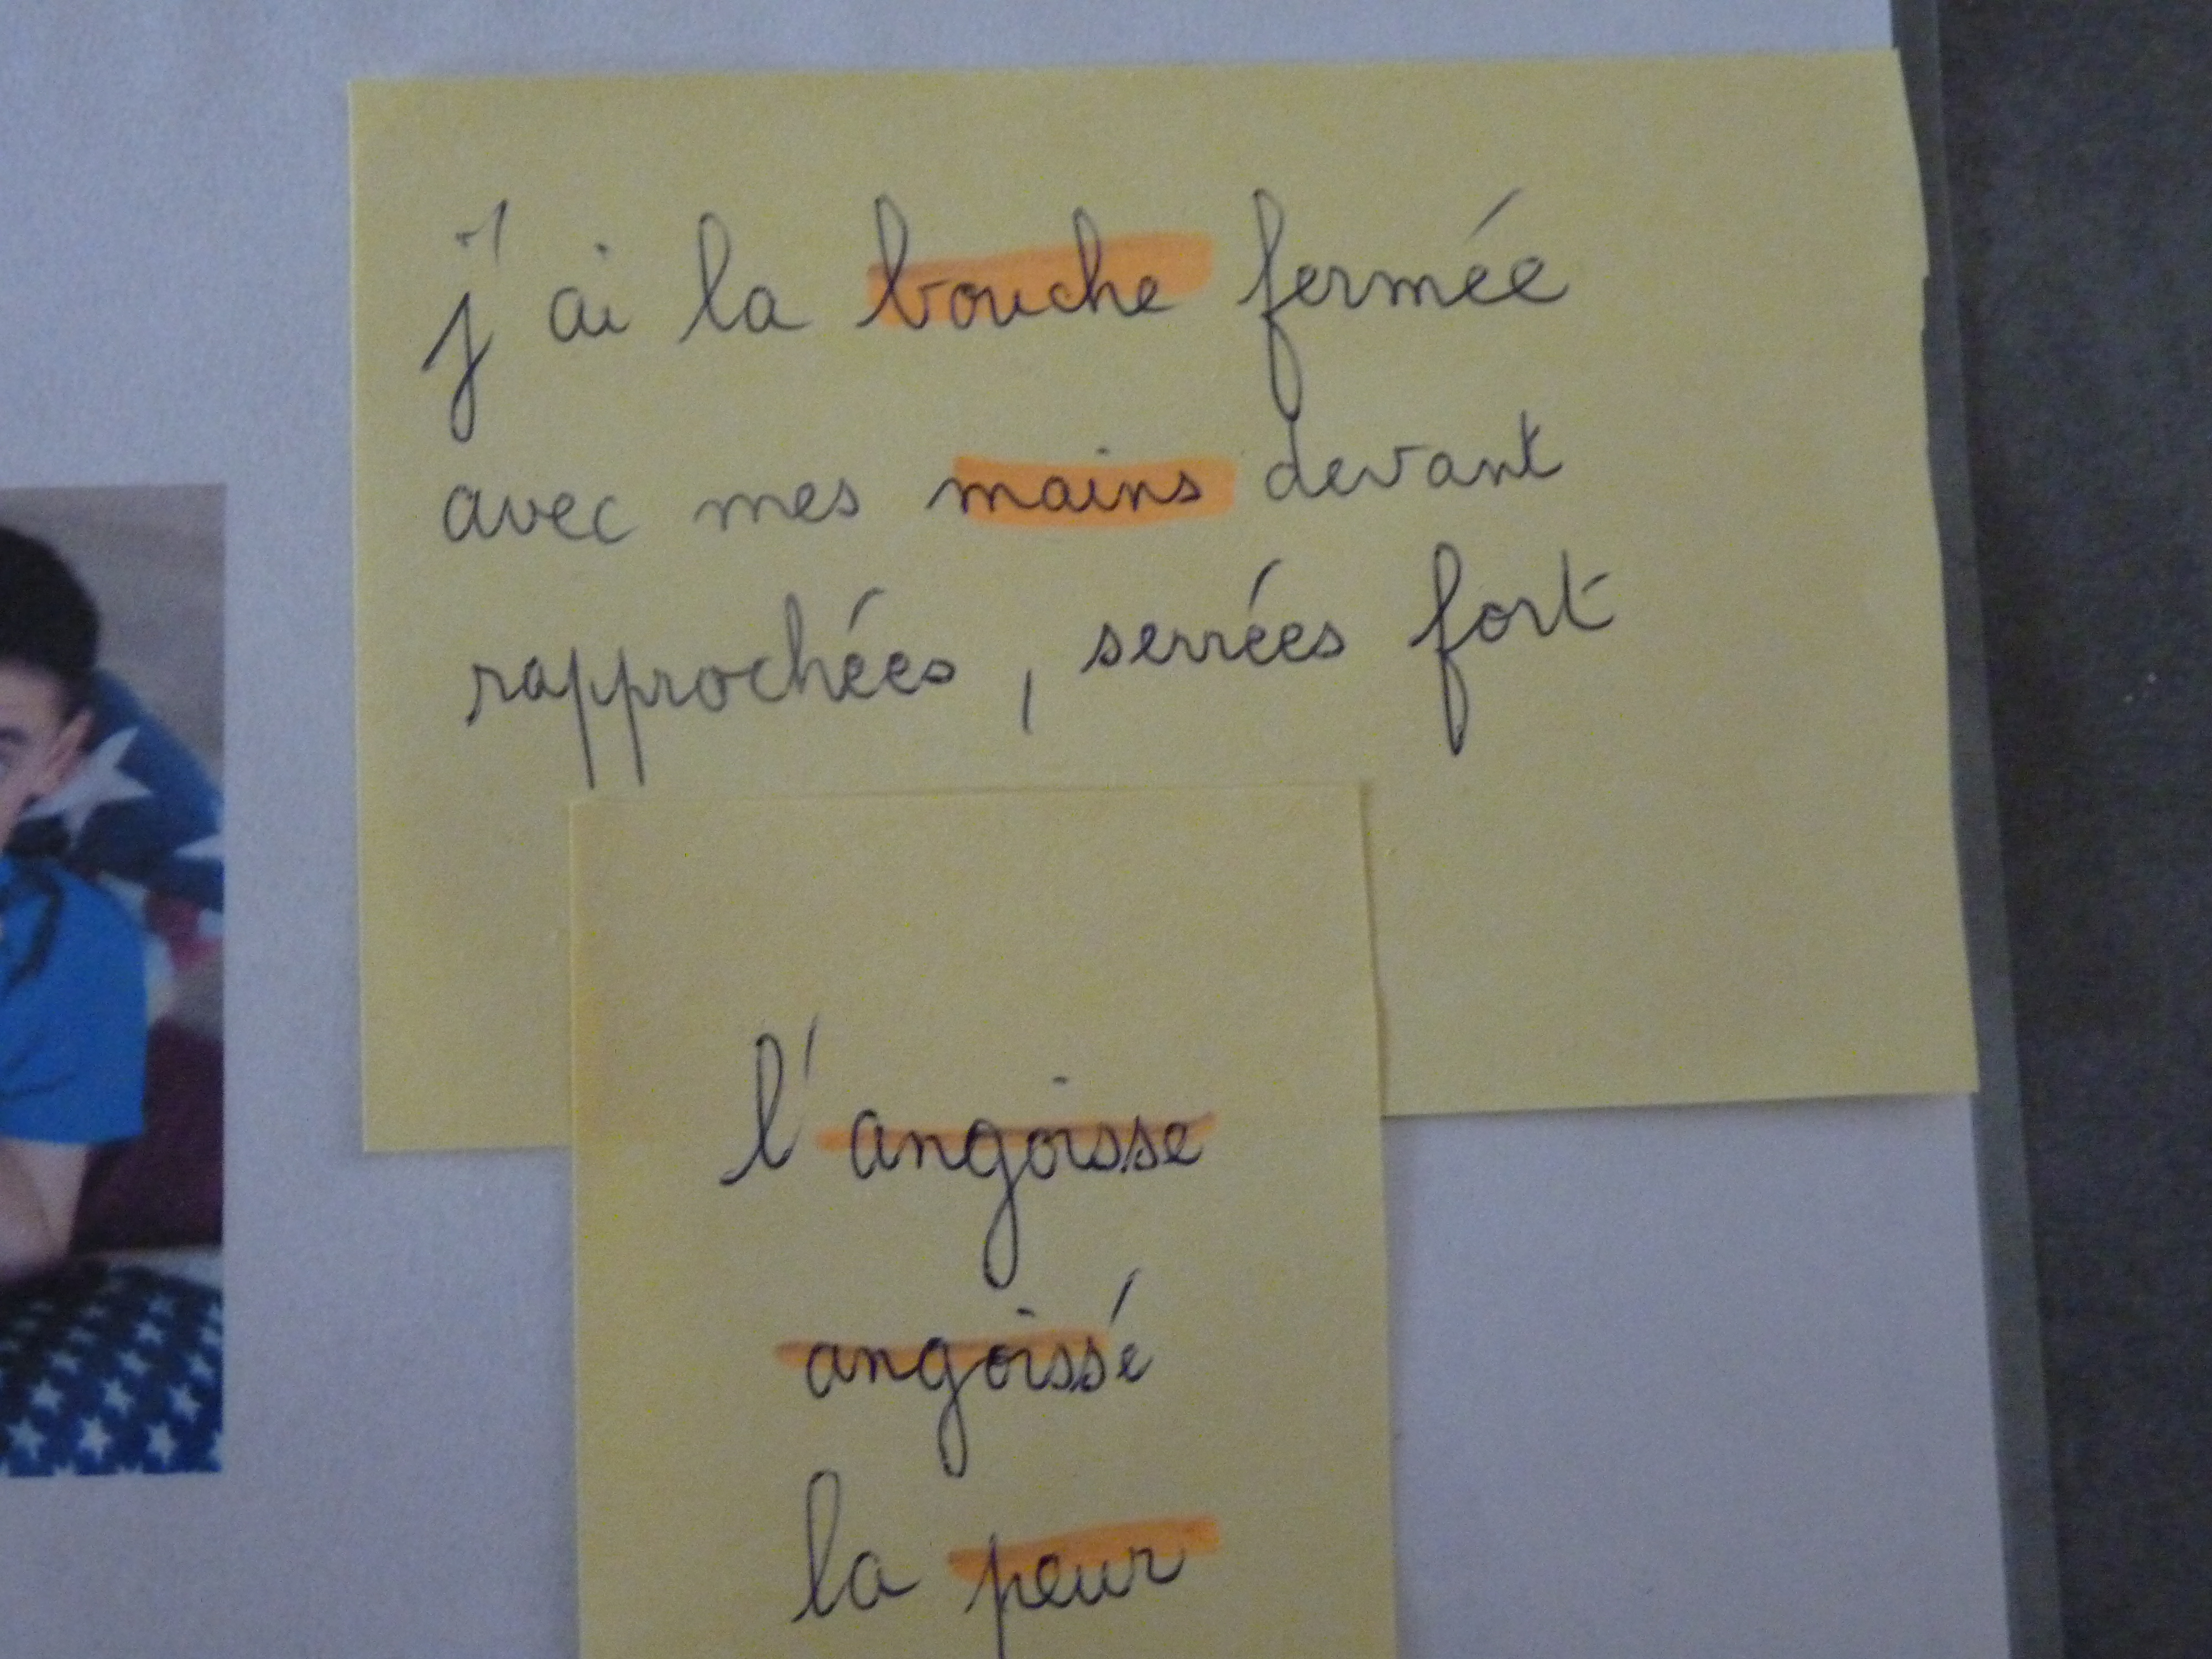 j'ai la bouche fermée
avec mes mains devant
rapprochées, serrées fort
l'angoisse
angoissé
la peur